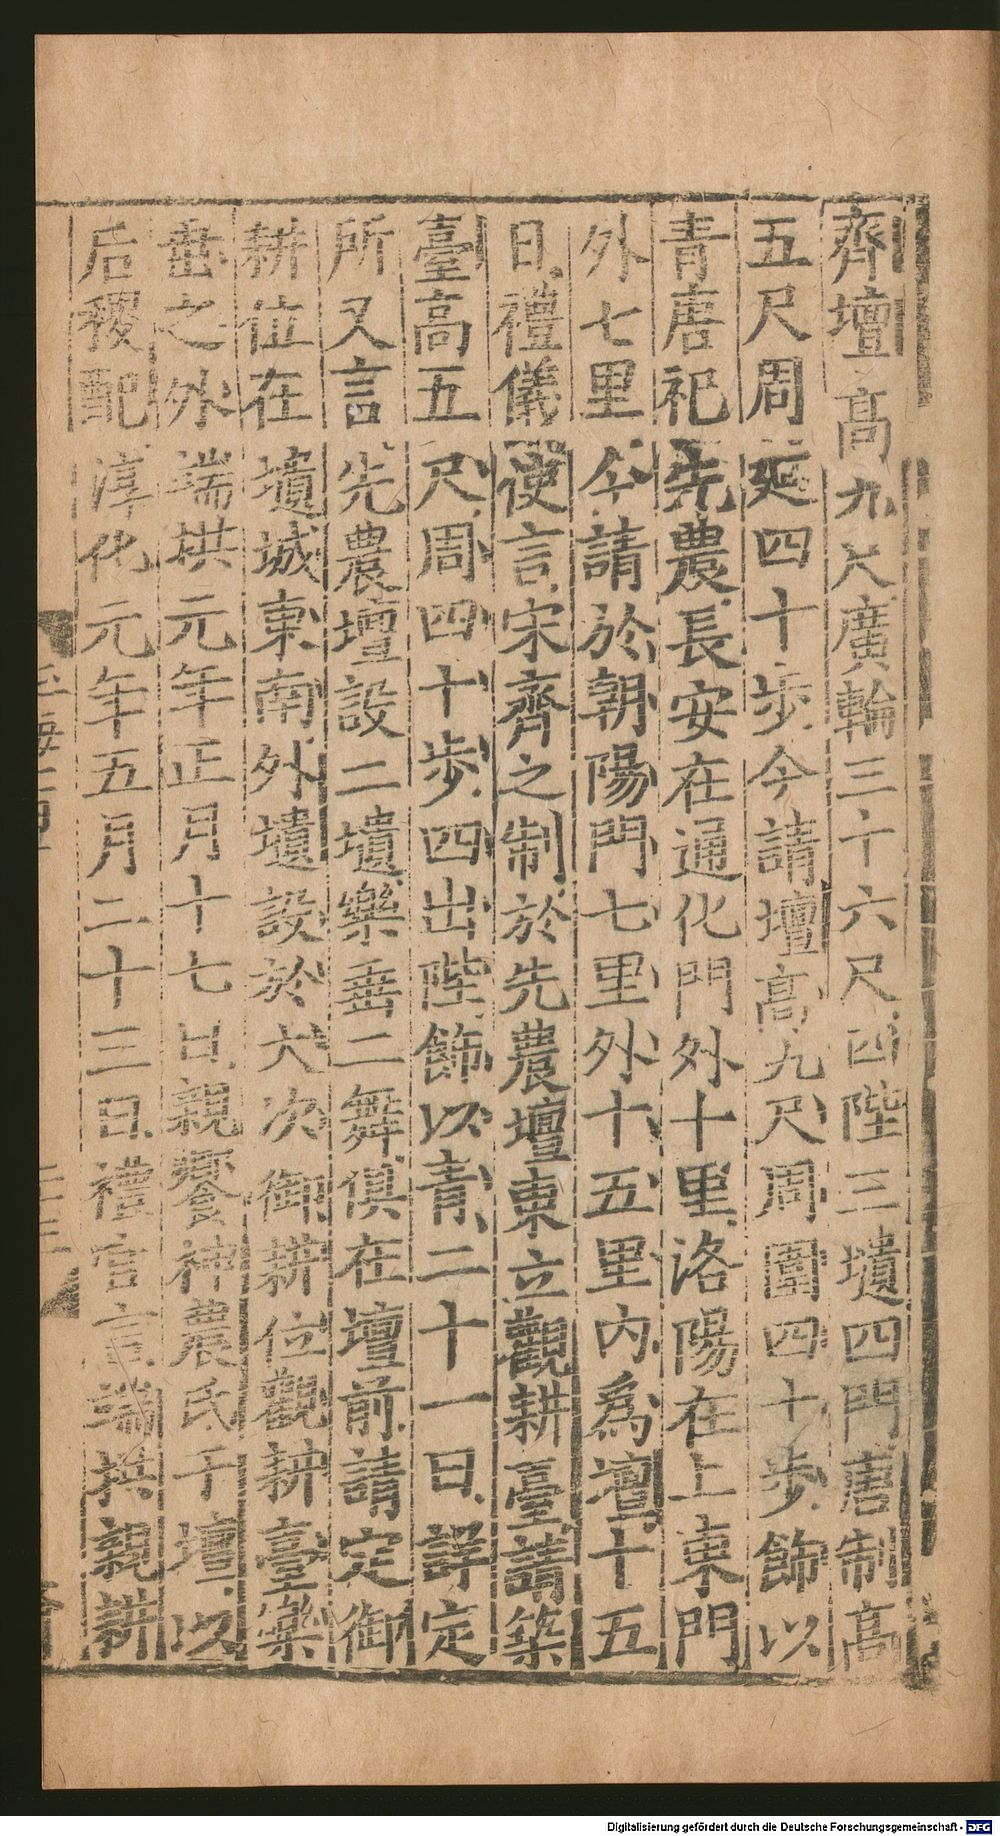 齊壇高九尺廣輪三十六尺四陛三壝四門唐制高
五尺周延四十步今請壇高九尺周圍四十步飾以
青唐祀先農長安在通化門外十里洛陽在上東門
外七里今請於朝陽門七里外十五里內爲壇十五
日禮儀使言宋齊之制於先農壇東立觀耕臺請築
臺高五尺周四十步四出陛飾以青二十一日詳定
所又言先農壇設二壝樂垂二舞俱在壇前請定御
耕位在壝城東南外壝設於大次御耕位觀耕臺樂
垂之外端拱元年正月十七日親饗神農氏于壇以
后稷配淳化元年五月二十三日禮官言端拱親耕
Digitalisierung gefördert durch die Deutsche Forschungsgemeinschaft - DFG